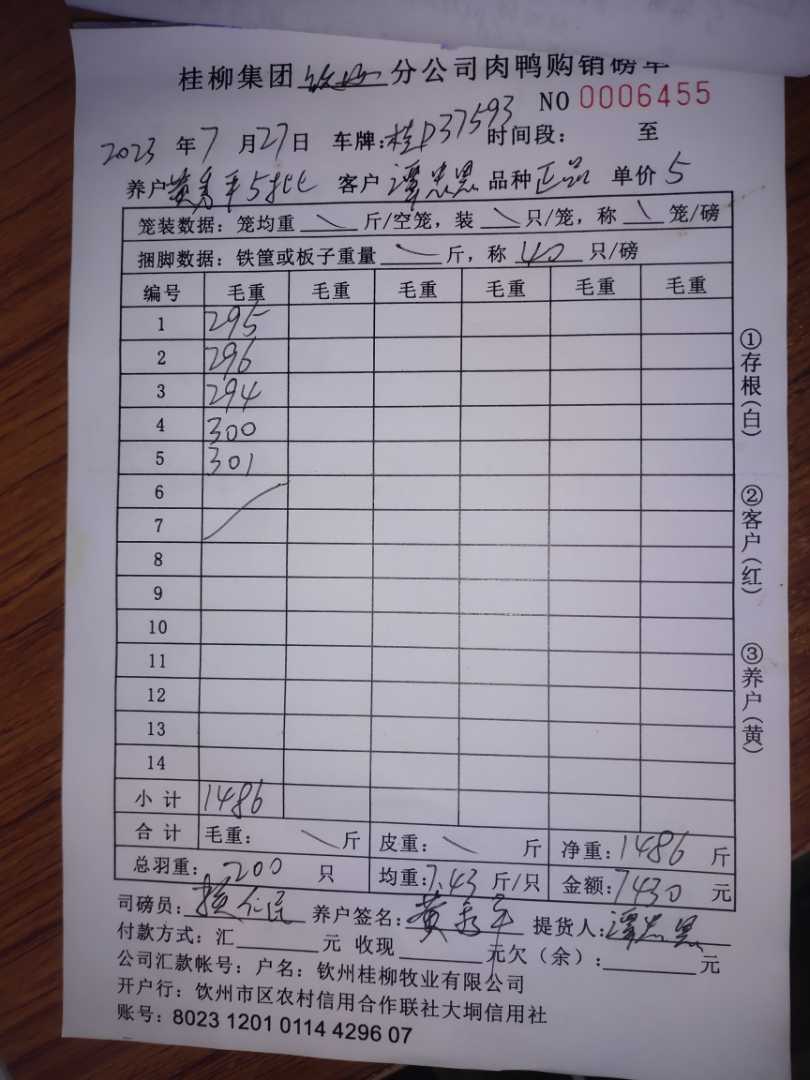 桂柳集团 钦州 分公司肉鸭购销磅单
NO 0006455
2023 年 7 月 27 日 车牌:桂D37593 时间段: 至
养户 黄秀平5批 客户 谭忠 品种 正品 单价 5
笼装数据: 笼均重 \ 斤/空笼, 装 \ 只/笼, 称 \ 笼/磅
捆脚数据: 铁筐或板子重量 \ 斤, 称 40 只/磅
编号 毛重 毛重 毛重 毛重 毛重 毛重
1 295
2 296
3 294
4 300
5 301
6
7
8
9
10
11
12
13
14
小计 1486
合计 毛重: \ 斤 皮重: \ 斤 净重: 1486 斤
总羽重: 200 只 均重: 7.43 斤/只 金额: 7430 元
司磅员: 养户签名: 黄秀平 提货人: 谭忠
付款方式: 汇 元 收现 元欠(余): 元
公司汇款帐号: 户名: 钦州桂柳牧业有限公司
开户行: 饮州市区农村信用合作联社大垌信用社
账号: 8023 1201 0114 4296 07
①存根(白)
②客户(红)
③养户(黄)